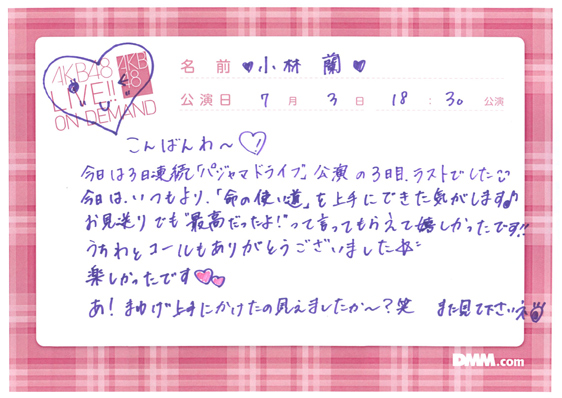 AKB48
LIVE!!
ON DEMAND
AKB
48
名前 ♥小林 蘭♥
公演日 7月 3日 18:30 公演
こんばんわ〜♡
今日は3日連続「パジャマドライブ」公演の3日目、ラストでした
今日は、いつもより、「命の使い道」を上手にできた気がします♪
お見送りでも"最高だったよ!"って言ってもらえて嬉しかったです!!
うちわとコールもありがとうございました
楽しかったです♥♥
あ!まゆげ上手にかけたの見えましたか〜?笑 また見て下さいネ
DMM.com